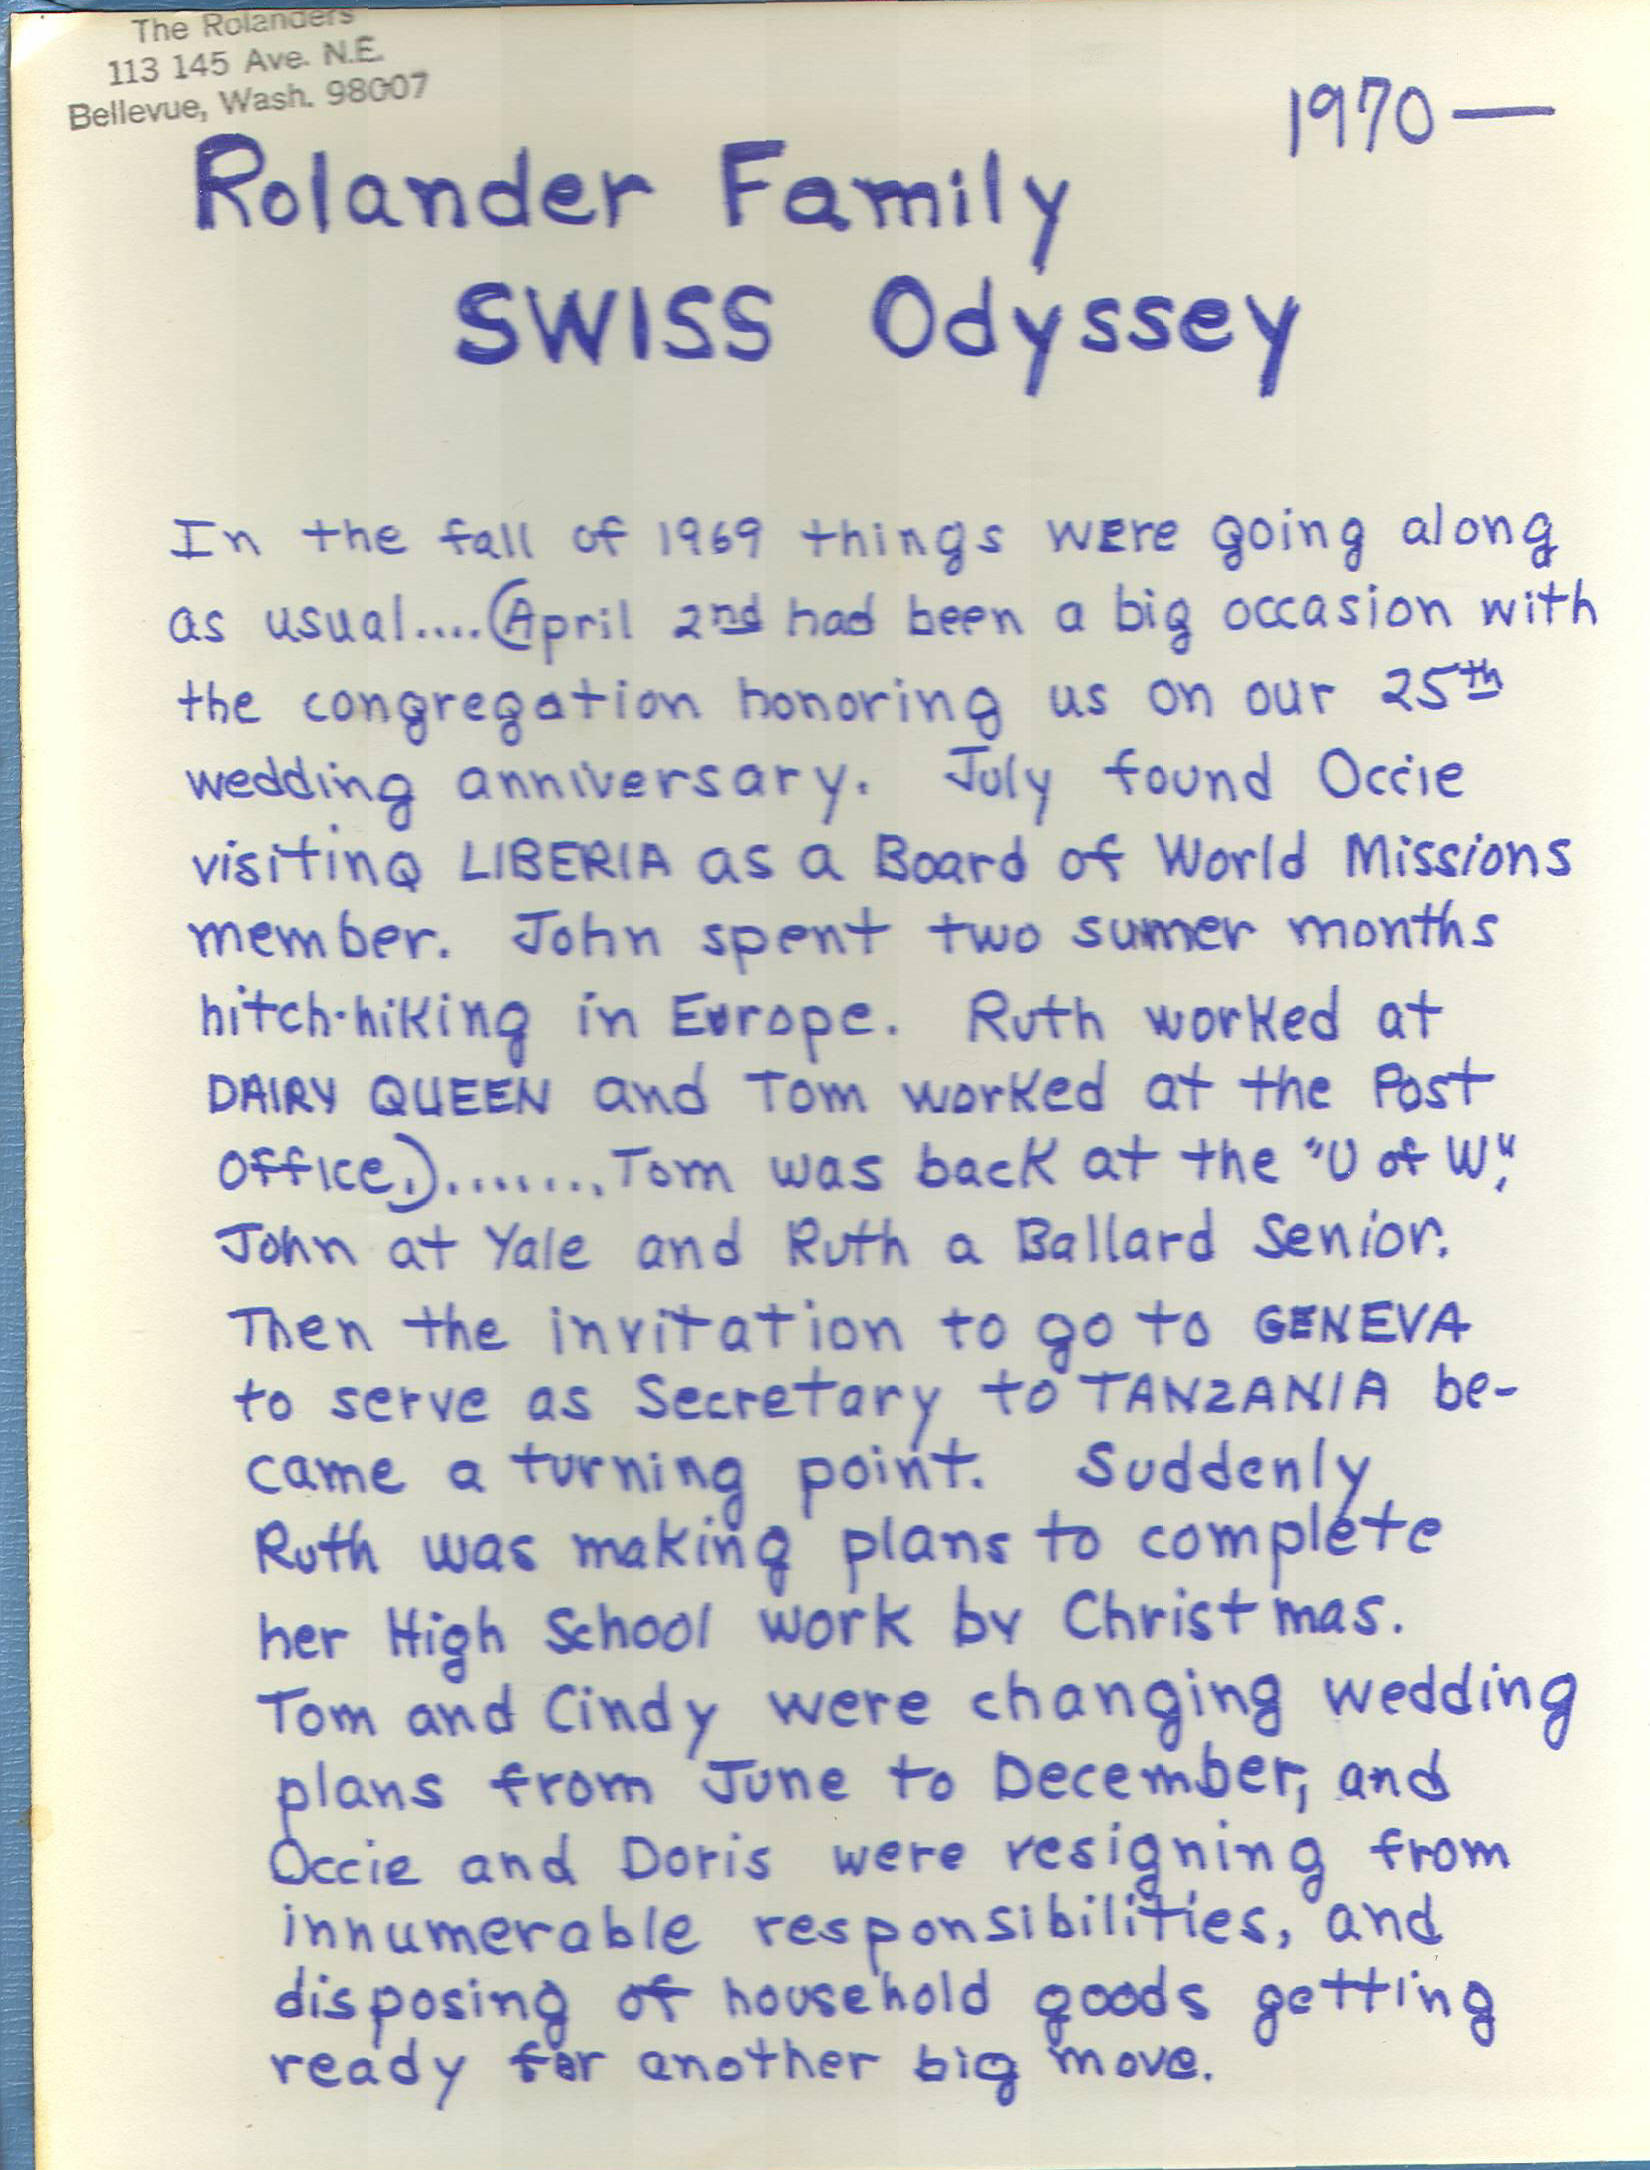 The Rolanders
113 145 Ave. N.E.
Bellevue, Wash. 98007
1970—
Rolander Family
SWISS Odyssey
In the fall of 1969 things were going along
as usual....(April 2nd had been a big occasion with
the congregation honoring us on our 25th
wedding anniversary. July found Occie
visiting LIBERIA as a Board of World Missions
member. John spent two sumer months
hitch-hiking in Europe. Ruth worked at
DAIRY QUEEN and Tom worked at the Post
Office.)........Tom was back at the "U of W",
John at Yale and Ruth a Ballard Senior.
Then the invitation to go to GENEVA
to serve as Secretary to TANZANIA be-
came a turning point. Suddenly
Ruth was making plans to complete
her High School work by Christmas.
Tom and Cindy were changing wedding
plans from June to December, and
Occie and Doris were resigning from
innumerable responsibilities, and
disposing of household goods getting
ready for another big move.